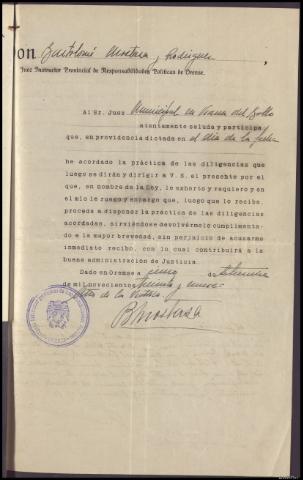 on Bartolomé Mostaza y Rodríguez
Juez Instructor Provincial de Responsabilidades Políticas de Orense.
Al Sr. Juez Municipal de Viana del Bollo
atentamente saludo y participo
que, en providencia dictada en el día de la fecha
he acordado la práctica de las diligencias que
luego se dirán y dirigir a V. S. el presente por el
que, en nombre de la Ley, le exhorto y requiero y en
el mío le ruego y encargo que, luego que lo reciba,
proceda a disponer la práctica de las diligencias
acordadas, sirviéndose devolvérmelo cumplimenta-
do a la mayor brevedad, sin perjuicio de acusarme
inmediato recibo, con lo cual contribuirá a la
buena administración de Justicia.
Dado en Orense a cinco de
de mil novecientos treinta y nueve
Año de la Victoria
BMostaza